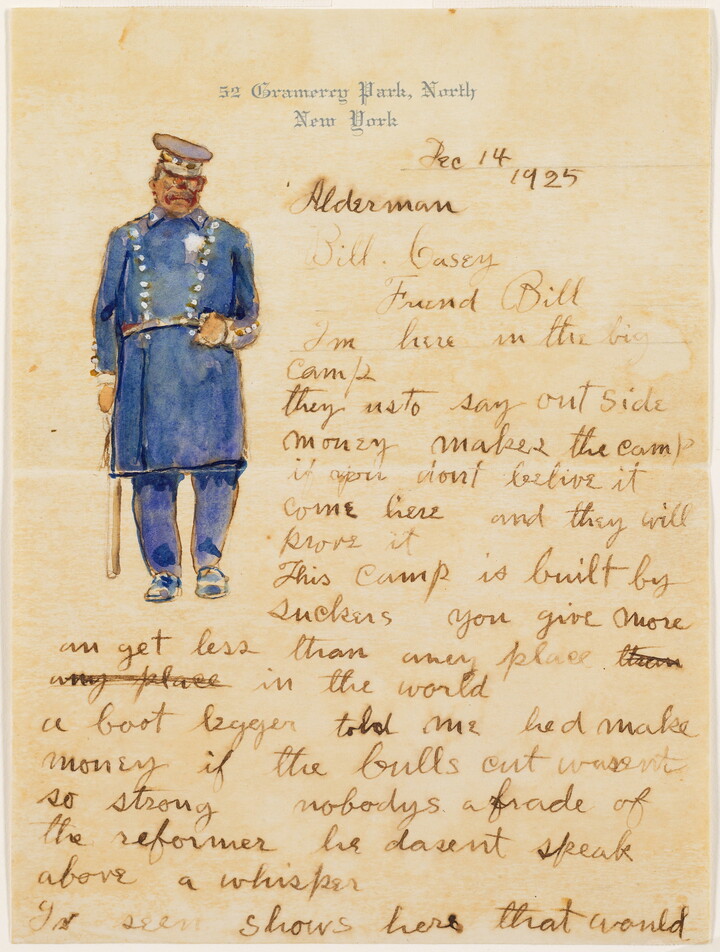 52 Gramercy Park, North
New York
Dec 14
1925
Alderman
Bill. Casey
Friend Bill
Im here in the big
camp
they usto say out side
money makes the camp
if you dont belive it
come here and they will
prove it
This camp is built by
suckers you give more
an get less than aney place than
any place in the world
a boot legger told me hed make
money if the bulls cut wasent
so strong nobodys afrade of
the reformer he dasent speak
above a whisper
Iv seen shows here that would